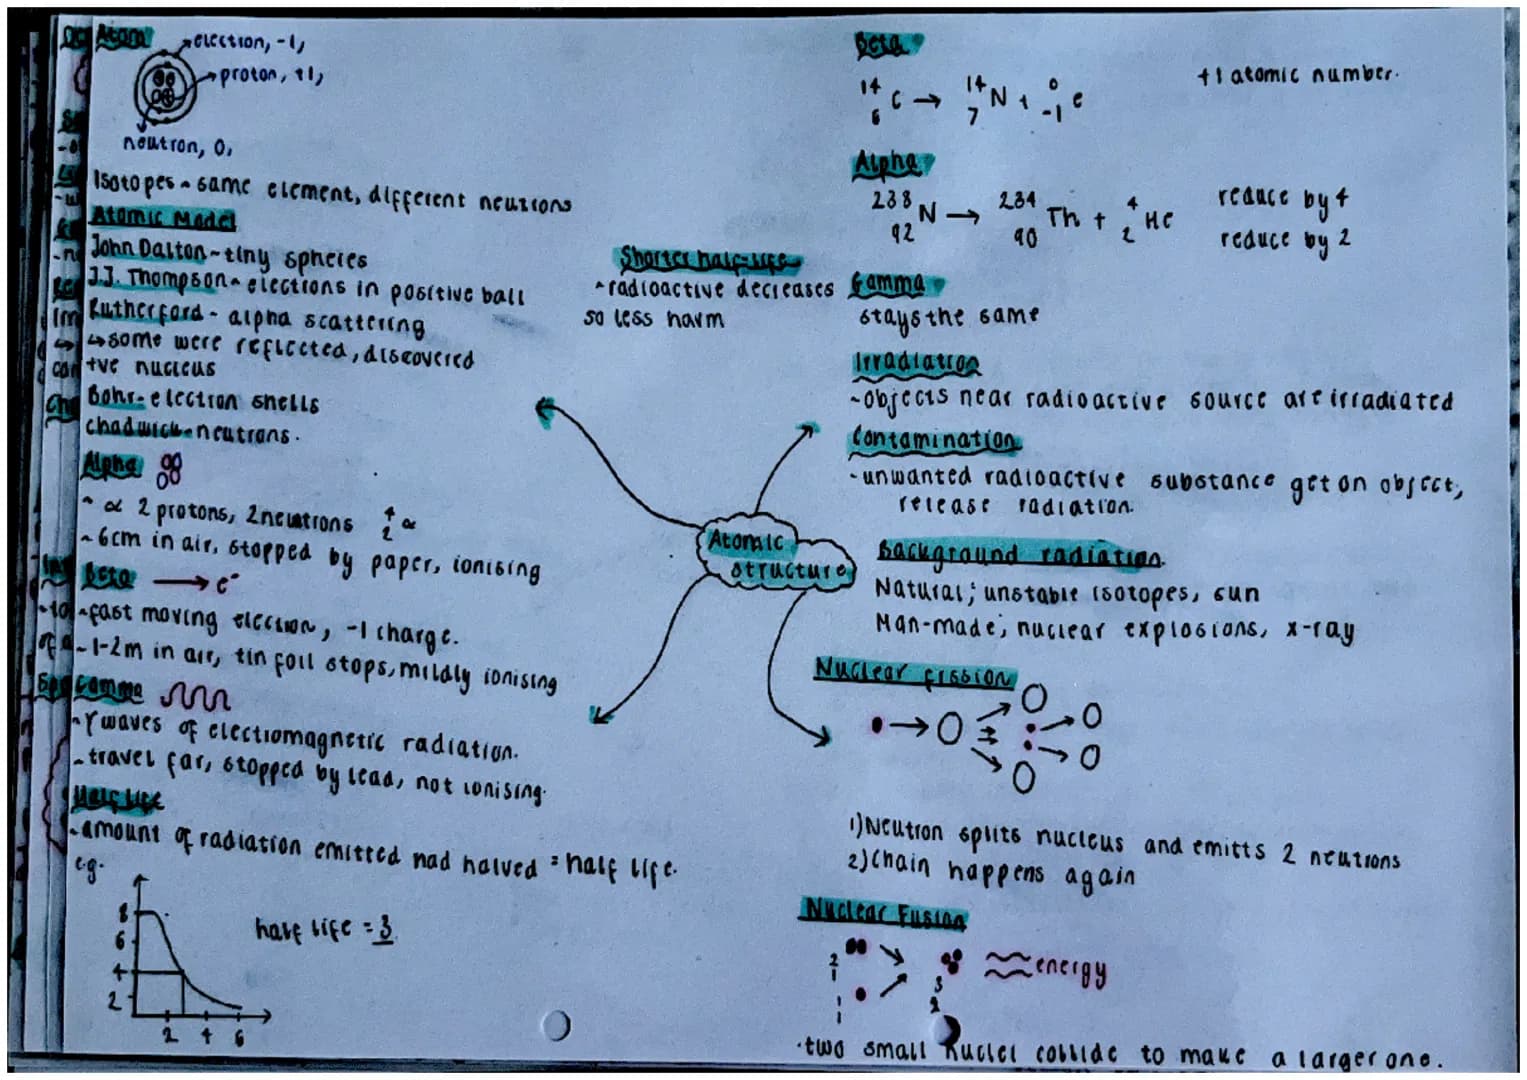 Atom
electron, -1,
proton, +1,
neutron, 0,
Isotopes - same element, different neutrons
Atomic Model
John Dalton - tiny spheres
J.J. Thompson - electrons in positive ball
Rutherford - alpha scattering
↳ some were reflected, discovered
+ve nucleus
Bohr - electron shells
chadwick - neutrons.
Alpha
- α 2 protons, 2 neutrons 4 2 α
~ 6cm in air, stopped by paper, ionising
Beta → e⁻
- fast moving electron, -1 charge.
~ 1-2m in air, tin foil stops, mildly ionising
Gamma
- γ waves of electromagnetic radiation.
- travel far, stopped by lead, not ionising.
Half life
- amount of radiation emitted had halved = half life.
e.g.
8
6
4
2
2 4 6
half life = 3
Shorter half-life
- radioactive decreases
so less harm
Atomic
structure
Beta
14 6 C → 14 7 N + 0 -1 e
+1 atomic number.
Alpha
238 92 N → 234 90 Th + 4 2 He
reduce by 4
reduce by 2
Gamma
stays the same
Irradiation
- objects near radioactive source are irradiated
Contamination
- unwanted radioactive substance get on object,
release radiation.
Background radiation
Natural; unstable isotopes, sun
Man-made; nuclear explosions, x-ray
Nuclear fission
1) Neutron splits nucleus and emitts 2 neutrons
2) Chain happens again
Nuclear Fusion
2 1
1 1
3 2
energy
· two small nuclei collide to make a larger one.